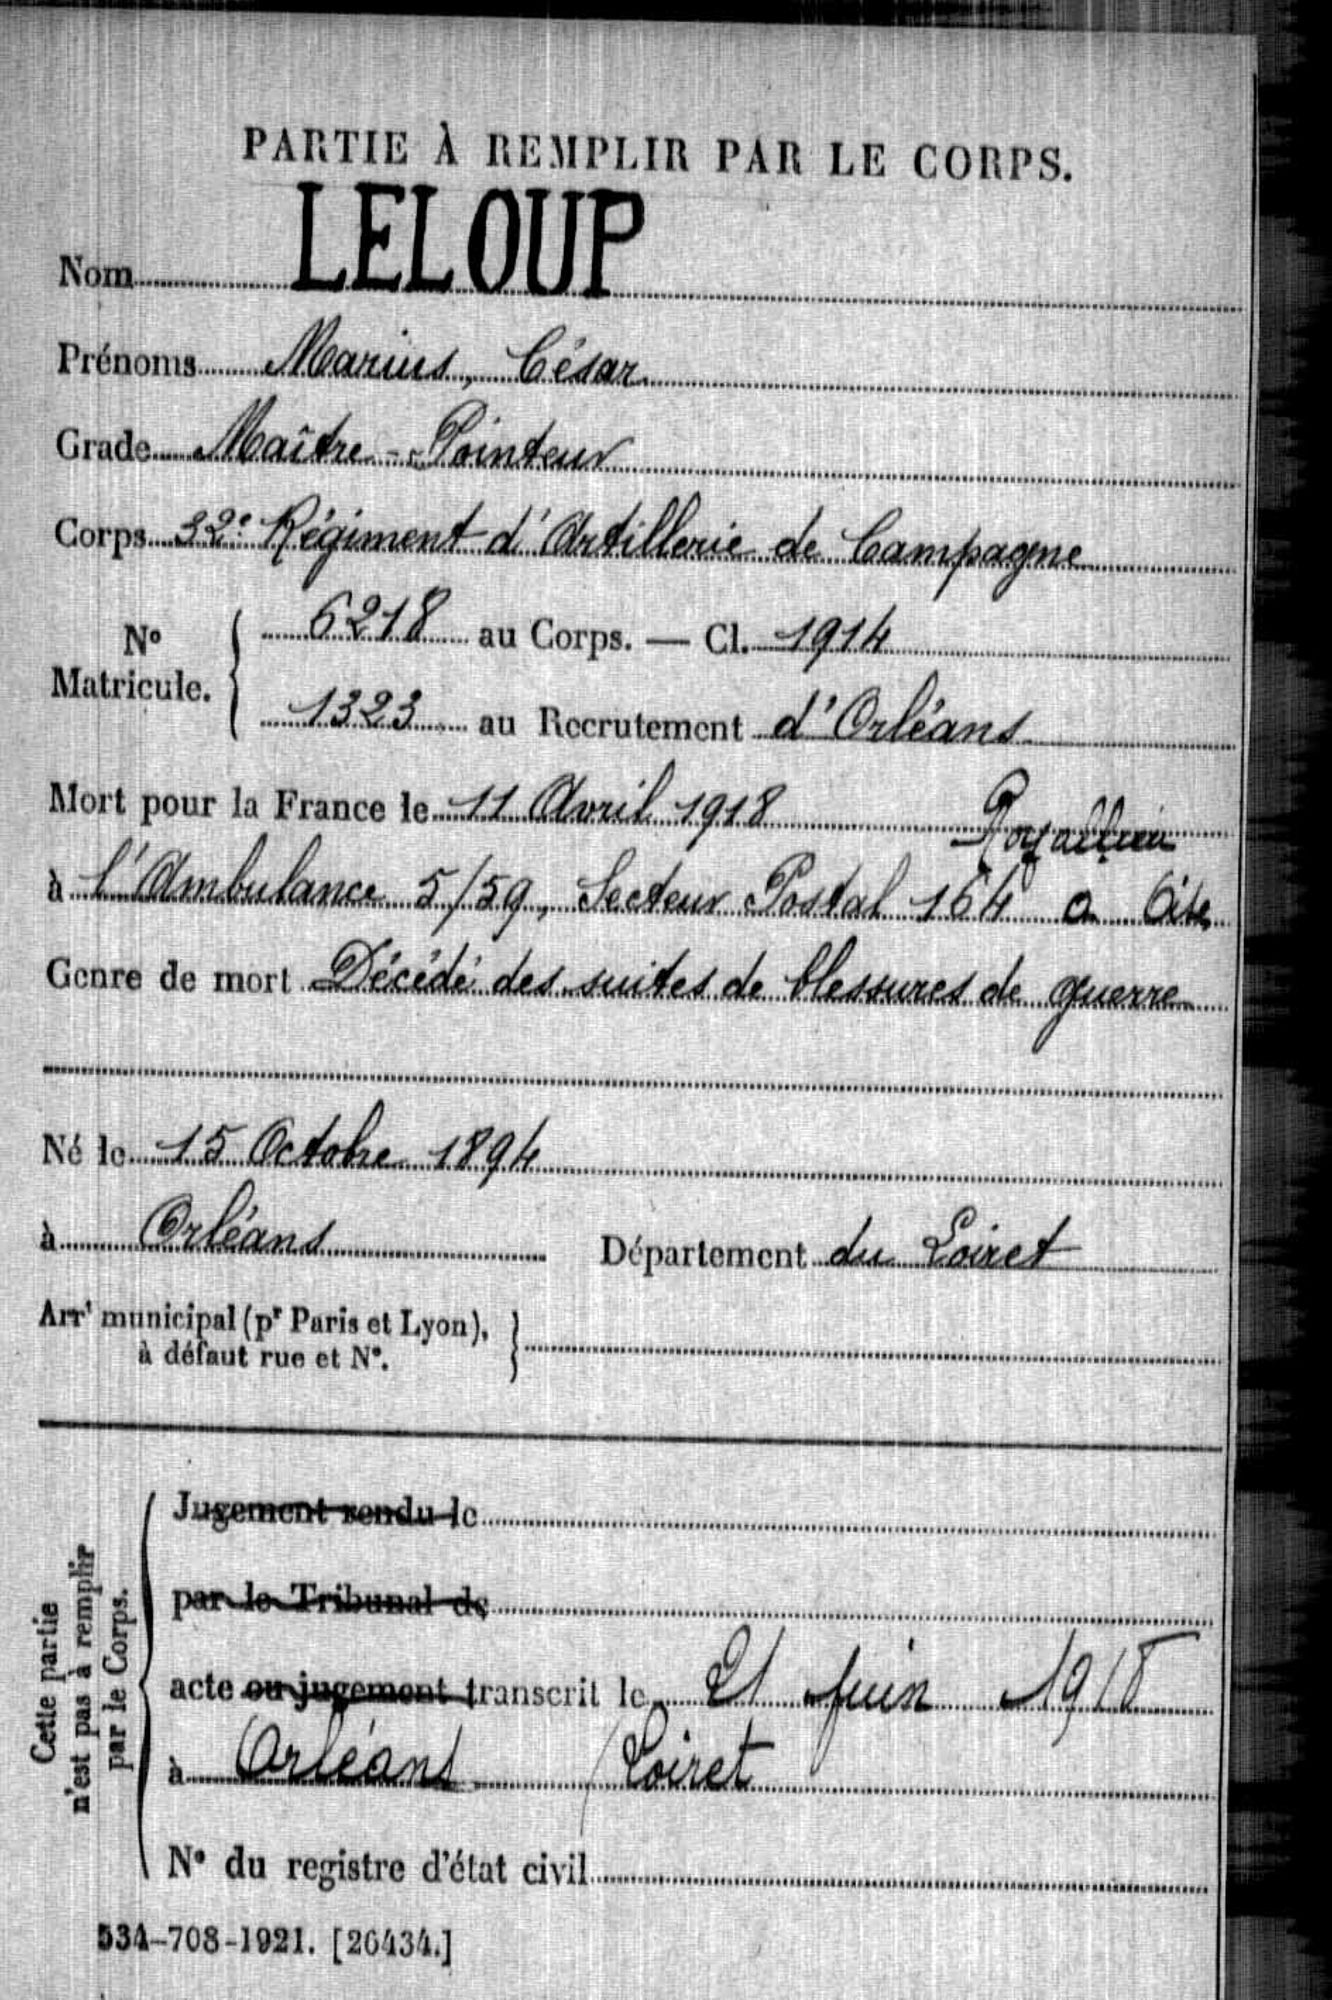 PARTIE À REMPLIR PAR LE CORPS.
Nom LELOUP
Prénoms Marius, César
Grade Maître-Pointeur
Corps 32e Régiment d'Artillerie de Campagne
No Matricule. 6218 au Corps. — Cl. 1914
1323 au Recrutement d'Orléans
Mort pour la France le 11 Avril 1918 Royallieu
à l'Ambulance 5/59, Secteur Postal 164 a Oise
Genre de mort Décédé des suites de blessures de guerre
Né le 15 Octobre 1894
à Orléans Département du Loiret
Arrt municipal (pr Paris et Lyon),
à défaut rue et N°.
Cette partie
n'est pas à remplir
par le Corps.
Jugement rendu le
par le Tribunal de
acte ou jugement transcrit le 21 Juin 1918
à Orléans Loiret
N° du registre d'état civil
534-708-1921. [26434.]